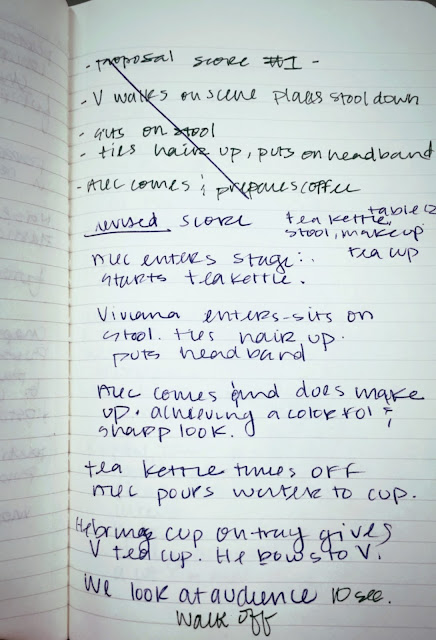 - proposal score #1 -
- V walks on scene places stool down
- sits on stool
- ties hair up, puts on headband
- Alec comes & prepares coffee
revised score
tea kettle, table
stool, makeup
tea cup
Alec enters stage:.
starts teakettle.
Viviana enters-sits on
stool. ties hair up.
puts headband
Alec comes and does make
up. achieving a colorful &
sharp look.
tea kettle times off
Alec pours water to cup.
He brings cup on tray gives
V tea cup. He bows to V.
We look at audience 10 sec.
walk off